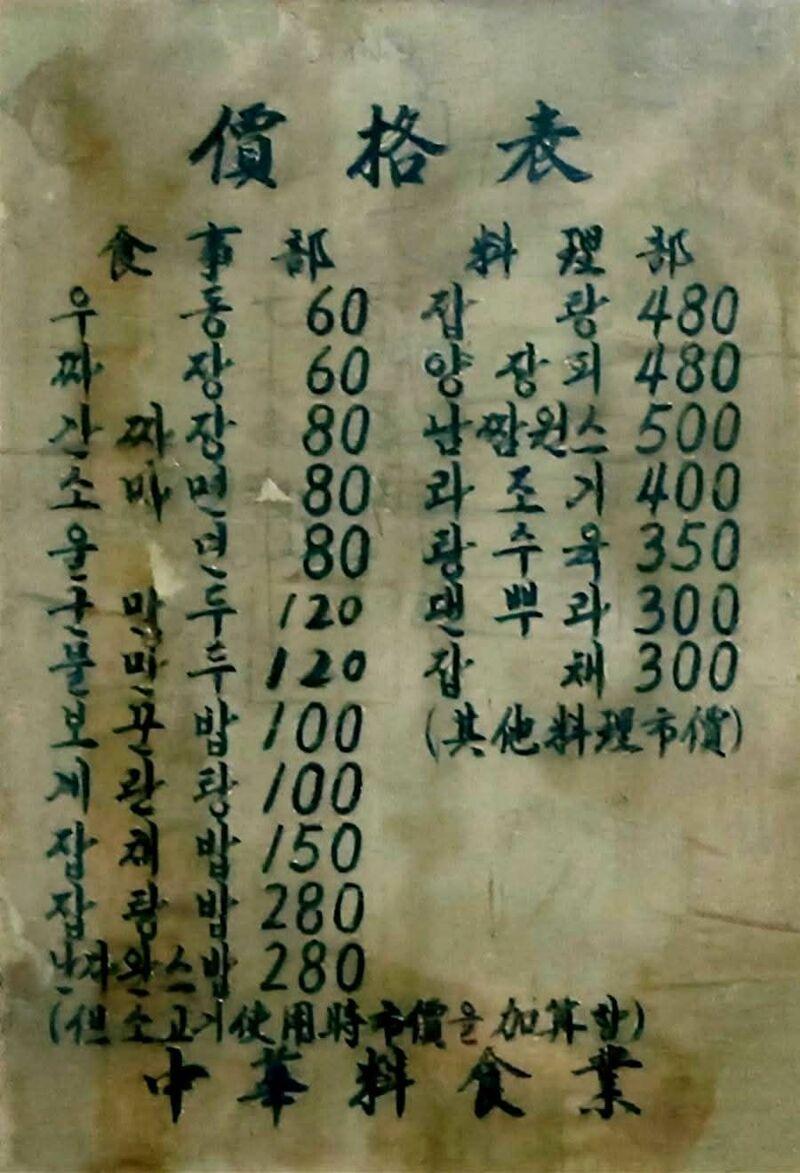 價格表
食事部
우동 60
짜장 60
간짜장 80
소마면 80
울면 80
군만두 120
물만두 120
보꾼밥 100
계란탕 100
잡채밥 150
잡탕밥 280
난자완스밥 280
(但소고기使用時市價을加算함)
料理部
잡탕 480
양장피 480
남짬원스 500
라조기 400
탕수육 350
댄뿌라 300
잡채 300
(其他料理市價)
中華料食業